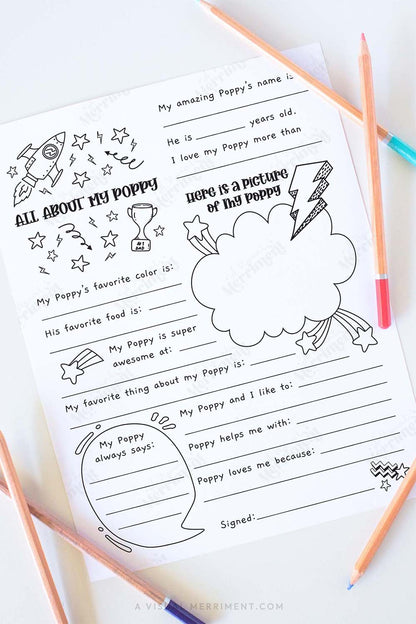 My amazing Poppy's name is
He is ________ years old.
I love my Poppy more than
ALL ABOUT MY POPPY
Here is a picture
of my Poppy
#1
DAD
My Poppy's favorite color is:
His favorite food is:
My Poppy is super
awesome at:
My favorite thing about my Poppy is:
My Poppy and I like to:
My Poppy
always says:
Poppy helps me with:
Poppy loves me because:
Signed: